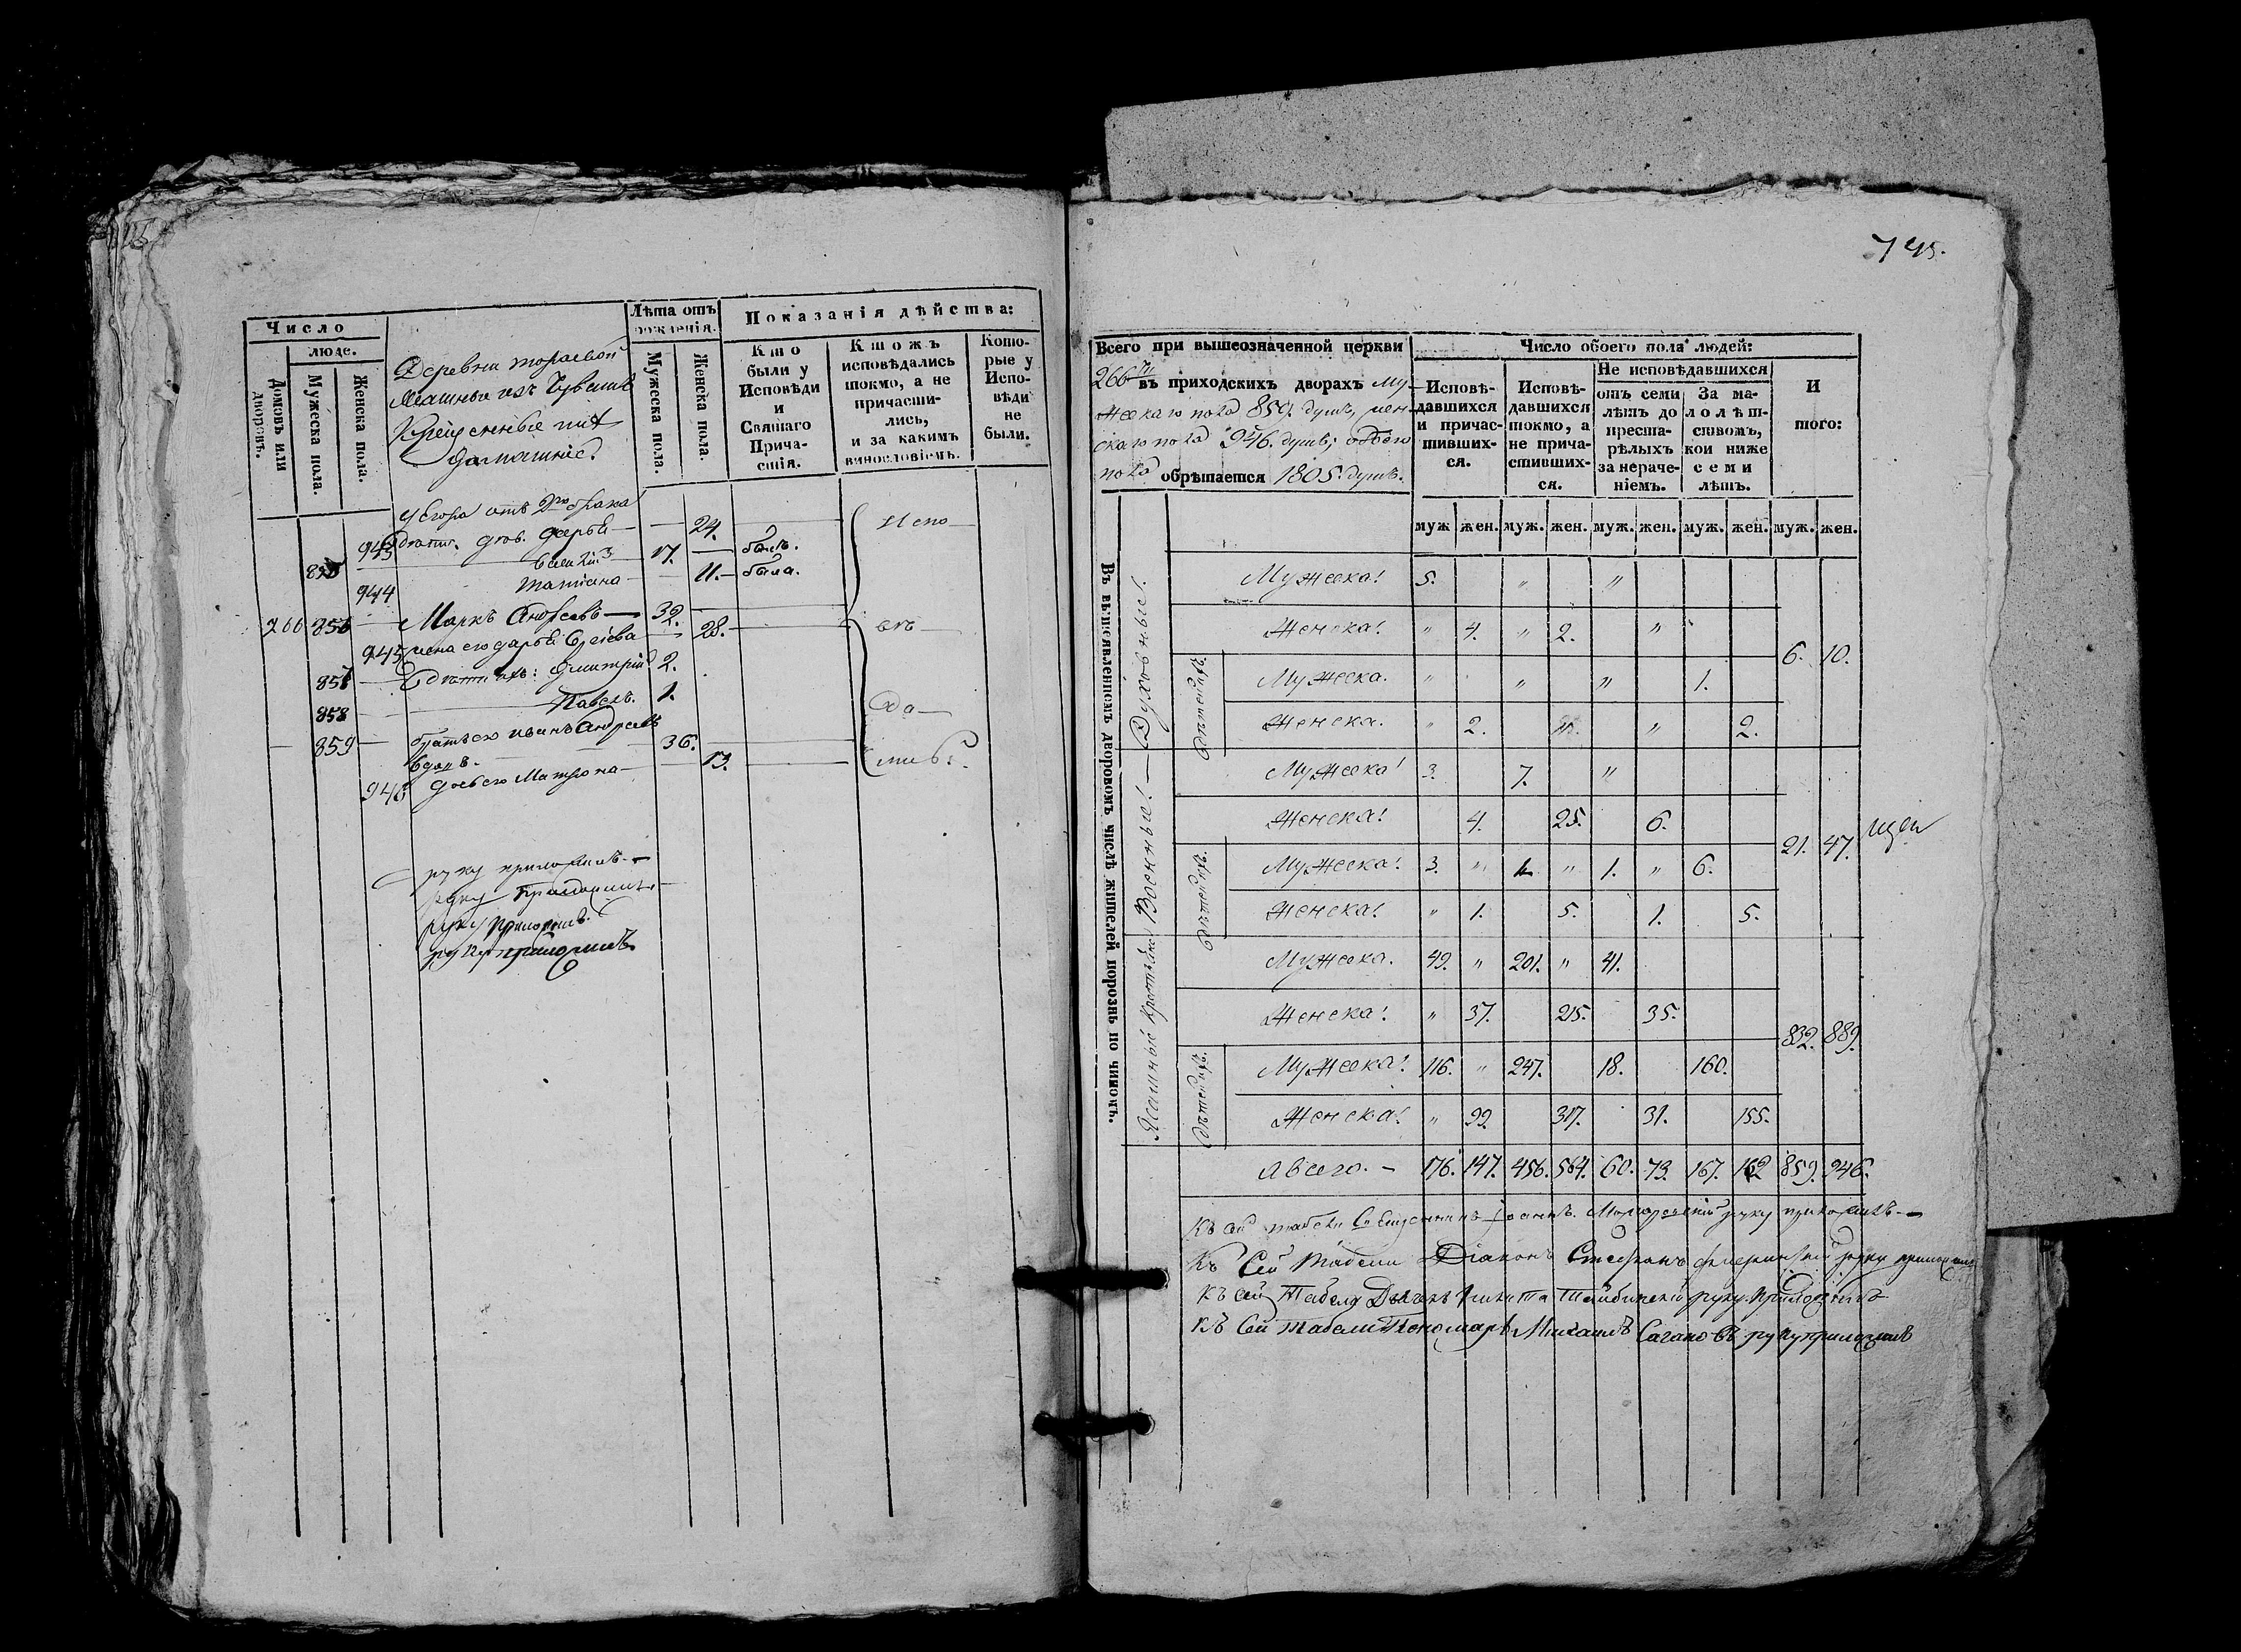 Число
люде.
Домовъ или дворовъ.
Мужеска пола.
Женска пола.
Деревни
ясашные изъ Чувашъ
Крещенные
домашние.
Лѣта отъ рожденія.
Мужеска пола.
Женска пола.
Показанія дѣйства:
Кто были у Исповѣди и Святаго Причастія.
Ктожъ исповѣдались токмо, а не причастились, и за какимъ винословіемъ.
Которые у Исповѣди не были.
у Егора отъ 2го брака
943 дѣти. дочь. Дарья — 24. Испо—
17. — былъ.
944 Татіана — 11. — была.
266 856 Маркъ Андреевъ — 32.
945 жена его Дарья — 28.
857 дѣти ихъ: Димитрій 2.
858 Павелъ. 1.
859 братъ его Иванъ Андреевъ
вдовъ. — 36.
946 дочь его Матрона — 13.
руку приложилъ. —
руку приложилъ. —
руку приложилъ.
руку приложилъ
745.
Всего при вышеозначенной церкви
266ти въ приходскихъ дворахъ му-
жескаго пола 859. душъ, жен-
скаго пола 946. душъ; обоего
пола обрѣтается 1805. душъ.
Число обоего пола людей:
Исповѣдавшихся и причастившихся.
Исповѣдавшихся токмо, а не причастившихся.
Не исповѣдавшихся
отъ семи лѣтъ до престарѣлыхъ за нераченіемъ.
За малолѣтствомъ, кои ниже семи лѣтъ.
И того:
муж жен. муж. жен. муж. жен. муж. жен. муж. жен.
Въ вышеявленномъ дворовомъ числѣ жителей порознь по чиномъ.
Духовные. —
Мужеска. 5. " "
Женска. " 4. " 2. " "
Дѣтей ихъ.
Мужеска. " " " 1.
Женска. " 2. " 2.
6. 10.
Военные. —
Мужеска 3. 7. "
Женска. 4. 25. 6.
Дѣтей ихъ.
Мужеска. 3. " 1. " 1. " 6.
Женска. " 1. 5. 1. 5.
21. 47.
Ясашные Крестьяне
Мужеска. 49. " 201. " 41.
Женска. " 37. 215. 35.
Дѣтей ихъ.
Мужеска. 116. " 247. 18. 160.
Женска. " 99. 317. 31. 155.
832. 889.
А всего. — 176. 147. 456. 564. 60. 73. 167. 162 859. 946.
Къ сей табели Священникъ Іоаннъ руку приложилъ. —
Къ Сей Табели Діаконъ Стефанъ руку приложилъ
Къ сей Табели Дьячекъ Никита руку приложилъ
Къ Сей табели Пономарь Михаилъ руку приложилъ